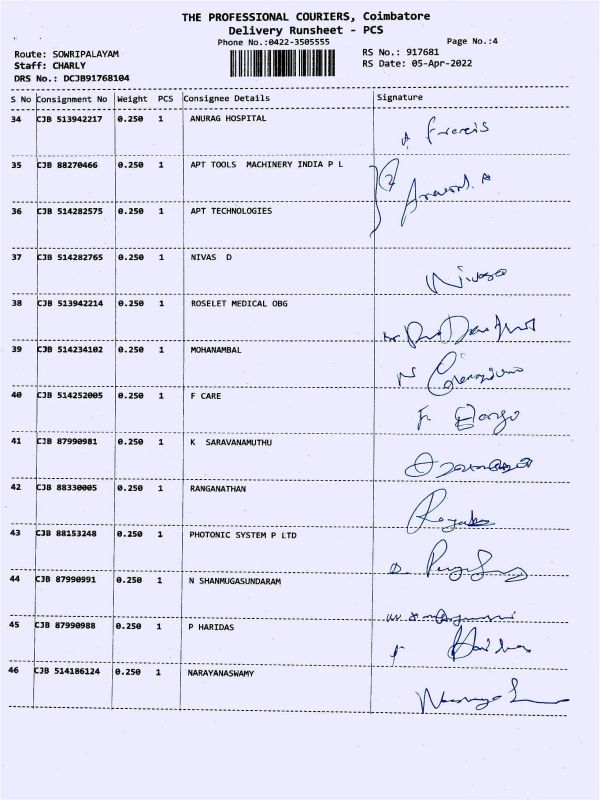 THE PROFESSIONAL COURIERS, Coimbatore
Delivery Runsheet - PCS
Phone No.:0422-3505555 Page No.:4
Route: SOWRIPALAYAM RS No.: 917681
Staff: CHARLY RS Date: 05-Apr-2022
DRS No.: DCJB91768104
S No Consignment No Weight PCS Consignee Details Signature
34 CJB 513942217 0.250 1 ANURAG HOSPITAL
35 CJB 88270466 0.250 1 APT TOOLS MACHINERY INDIA P L
36 CJB 514282575 0.250 1 APT TECHNOLOGIES
37 CJB 514282765 0.250 1 NIVAS D
38 CJB 513942214 0.250 1 ROSELET MEDICAL OBG
39 CJB 514234102 0.250 1 MOHANAMBAL
40 CJB 514252005 0.250 1 F CARE
41 CJB 87990981 0.250 1 K SARAVANAMUTHU
42 CJB 88330005 0.250 1 RANGANATHAN
43 CJB 88153248 0.250 1 PHOTONIC SYSTEM P LTD
44 CJB 87990991 0.250 1 N SHANMUGASUNDARAM
45 CJB 87990988 0.250 1 P HARIDAS
46 CJB 514186124 0.250 1 NARAYANASWAMY